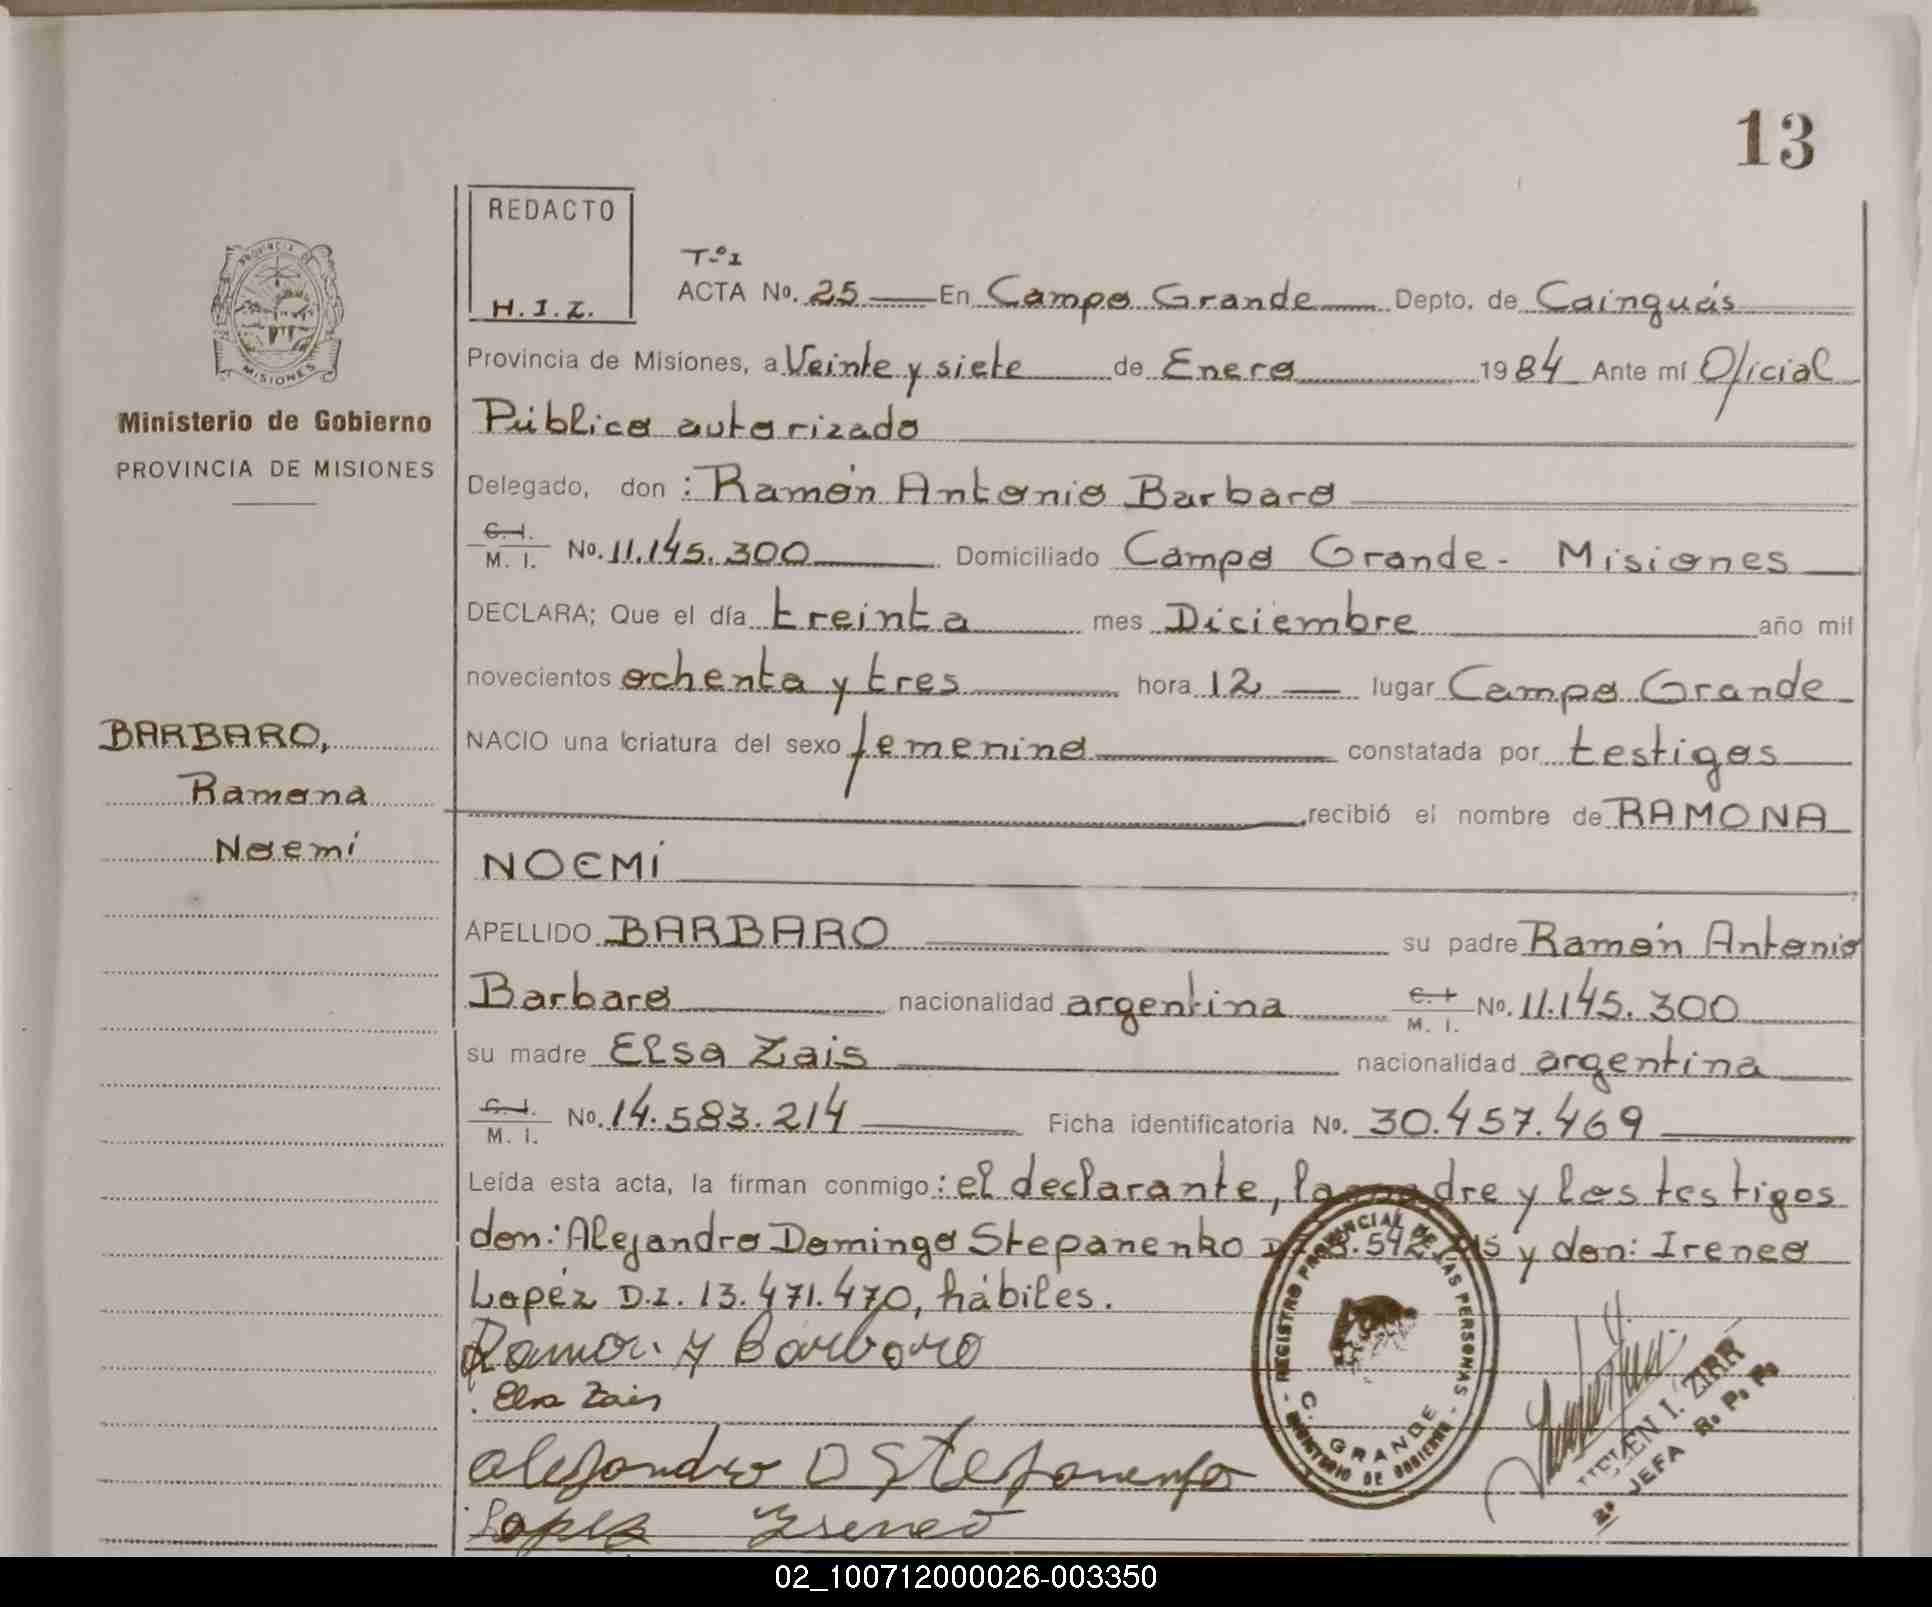 13
REDACTO
H.I.Z.
T-º1
ACTA No. 25 En Campo Grande Depto. de Cainguás
Provincia de Misiones, a Veinte y siete de Enero 1984 Ante mí Oficial
Público autorizado
Delegado, don : Ramón Antonio Barbaro
C.I. M. I. No. 11.145.300 Domiciliado Campo Grande - Misiones
DECLARA; Que el día treinta mes Diciembre año mil
novecientos ochenta y tres hora 12 lugar Campo Grande
NACIO una criatura del sexo femenino constatada por testigos
recibió el nombre de RAMONA
NOEMí
APELLIDO BARBARO su padre Ramón Antonio
Barbaro nacionalidad argentina C.I. M. I. No. 11.145.300
su madre Elsa Zais nacionalidad argentina
C.I. M. I. No. 14.583.214 Ficha identificatoria No. 30.457.469
Leída esta acta, la firman conmigo : el declarante, la madre y los testigos
don: Alejandro Domingo Stepanenko y don: Ireneo
Lopéz D.I. 13.471.470, hábiles.
Ramon A Barbaro
Elsa Zais
Alejandro D Stepanenko
Lopez Ireneo
PROVINCIA DE
MISIONES
Ministerio de Gobierno
PROVINCIA DE MISIONES
BARBARO,
Ramona
Noemí
REGISTRO PROVINCIAL DE LAS PERSONAS
C. GRANDE
MINISTERIO DE GOBIERNO
HELEN I. ZIRR
2º JEFA R. P. P.
02_100712000026-003350